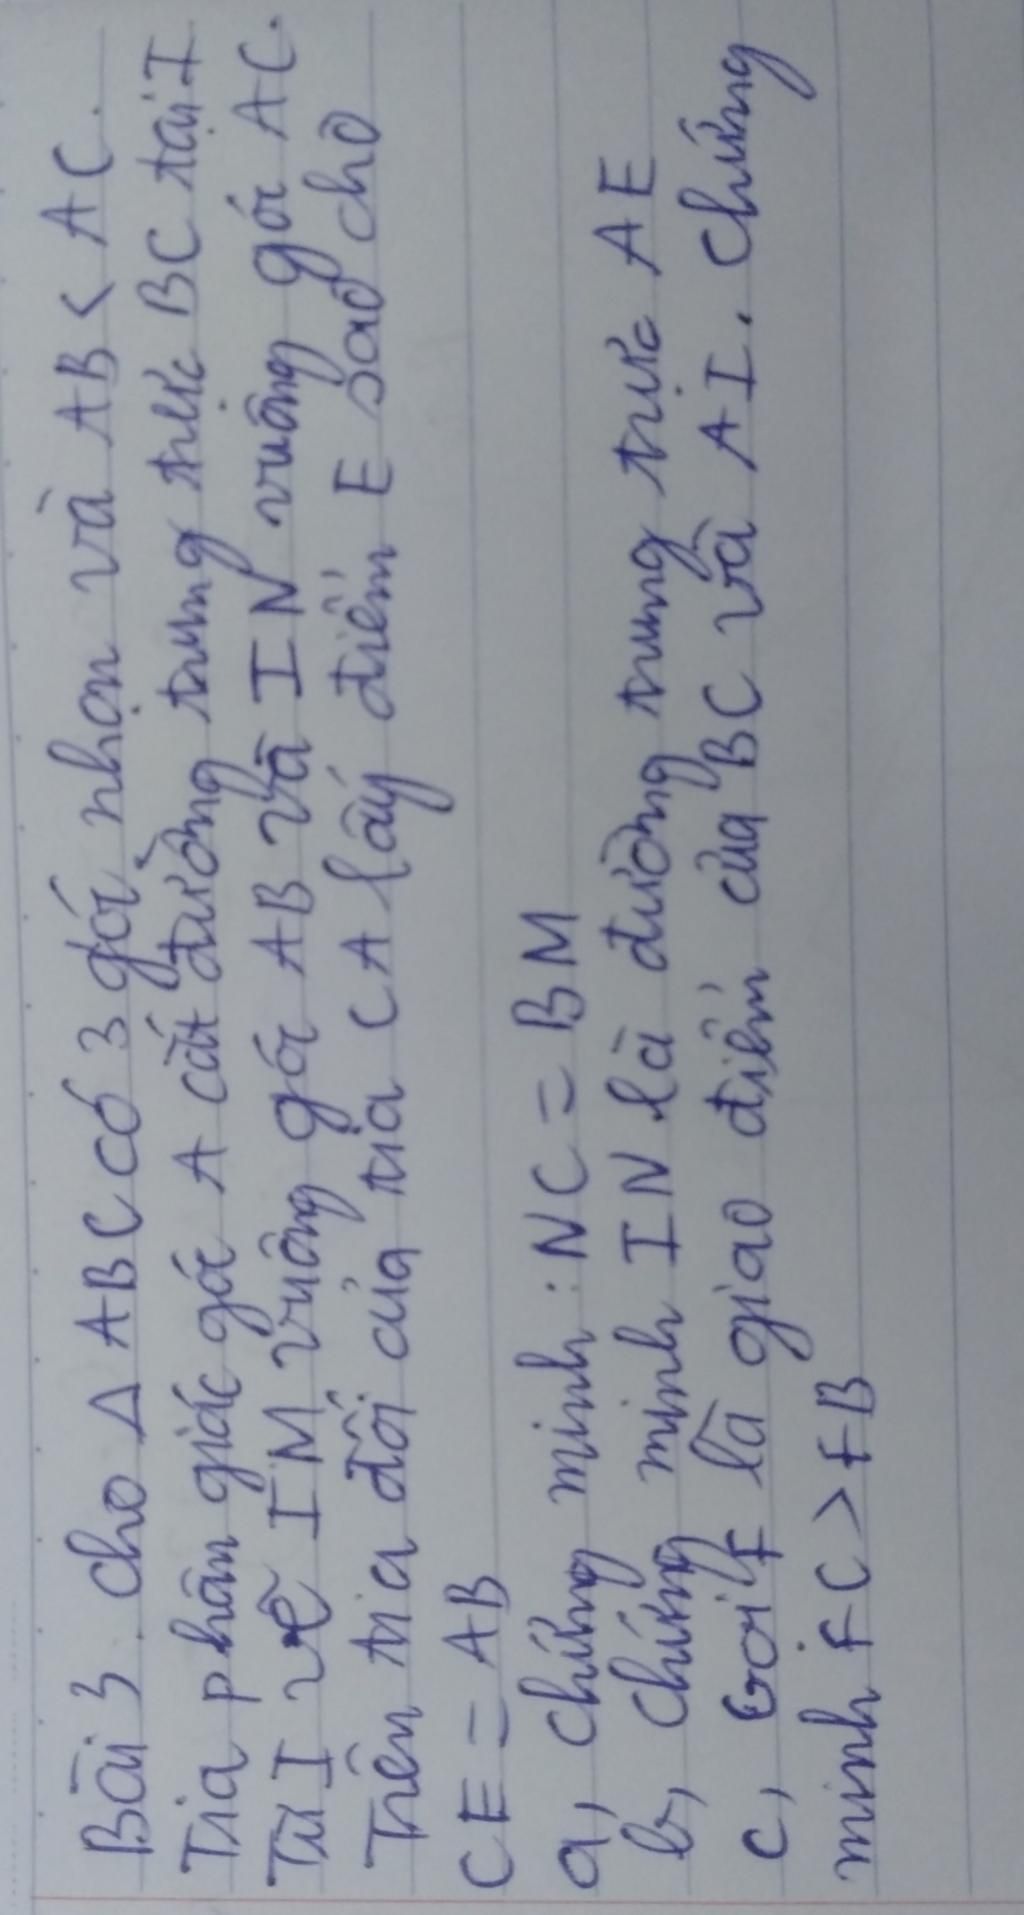 Bài 3. cho Δ ABC có 3 góc nhọn và AB < AC.
Tia phân giác góc A cắt đường trung trực BC tại I
Từ I vẽ IM vuông góc AB và IN vuông góc AC.
Trên tia đối của tia CA lấy điểm E sao cho
CE = AB
a, chứng minh : NC = BM
b, chứng minh IN là đường trung trực AE
c, Gọi F là giao điểm của BC và AI. Chứng
minh FC > FB